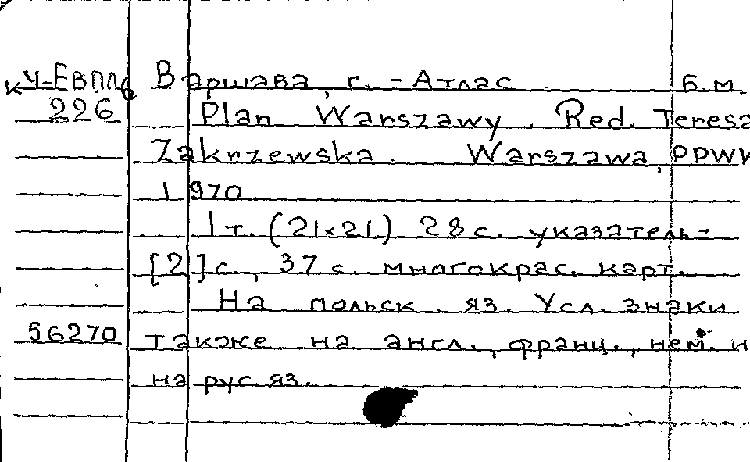 К У-ЕвПлв Варшава, г. - Атлас б.м.
226 Plan Warszawy. Red. Teresa
Zakrzewska. Warszawa, PPWK
1970
1 т. (21×21) 28 с. указатель-
[2] с., 37 с. многокрас. карт.
На польск. яз. Усл. знаки
56270 также на англ., франц., нем. и
на рус яз.